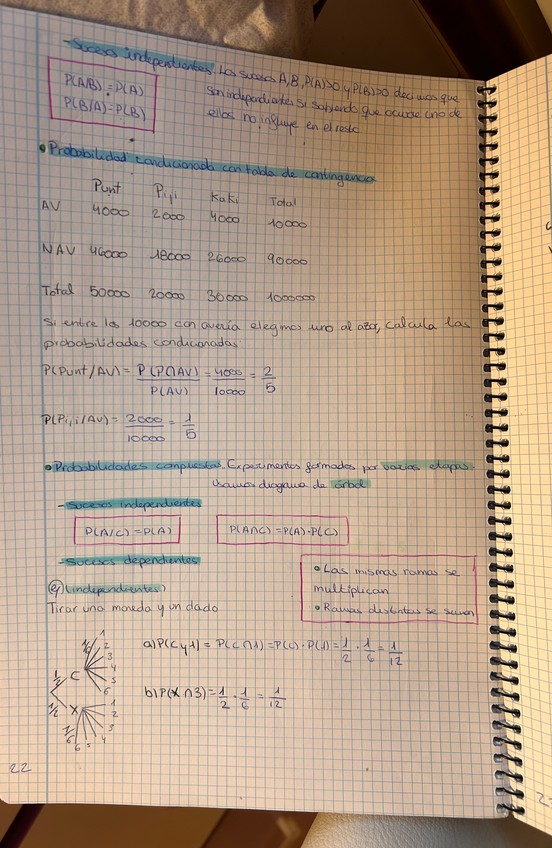 - Sucesos independientes. Los sucesos A, B, P(A)>0 y P(B)>0 decimos que
son independientes si sabiendo que ocurre uno de
ellos no influye en el resto
P(A/B) = P(A)
P(B/A) = P(B)
• Probabilidad condicionada con tabla de contingencia
Punt Piji Kaki Total
AV 4000 2000 4000 10000
NAV 46000 18000 26000 90000
Total 50000 20000 30000 1000000
Si entre los 10000 con avería elegimos uno al azar, calcula las
probabilidades condicionadas
P(Punt/AV) = P(P∩AV)/P(AV) = 4000/10000 = 2/5
P(Piji/AV) = 2000/10000 = 1/5
• Probabilidades compuestas. Experimentos formados por varias etapas
Usamos diagrama de árbol
- Sucesos independientes
P(A/C) = P(A) P(A∩C) = P(A)·P(C)
- Sucesos dependientes
• Las mismas ramas se
multiplican
• Ramas distintas se suman
ej (independientes)
Tirar una moneda y un dado
a) P(C y 1) = P(C∩1) = P(C)·P(1) = 1/2 · 1/6 = 1/12
b) P(X∩3) = 1/2 · 1/6 = 1/12
1/2 C 1/6 1 2 3 4 5 6
1/2 X 1/6 1 2 3 4 5 6
22